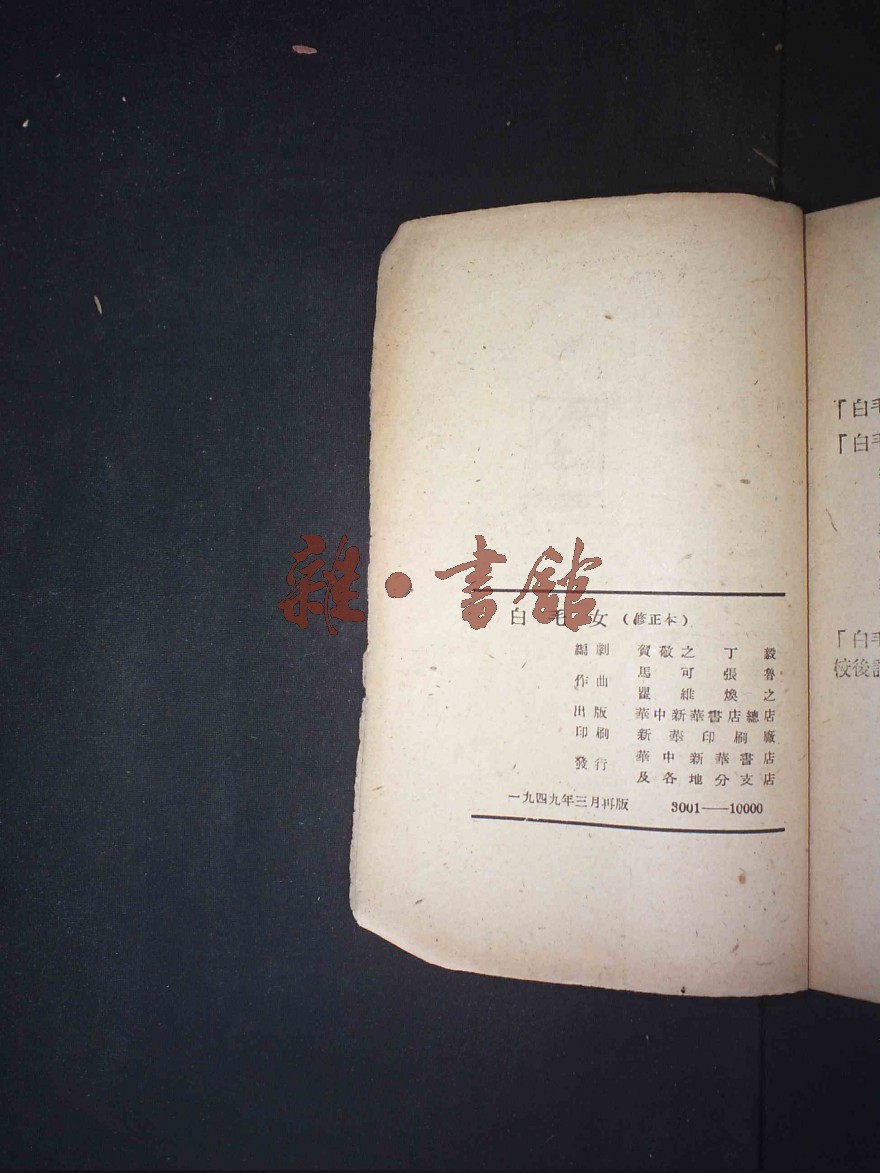 雜·書館
白毛女（修正本）
編劇 賀敬之 丁毅
作曲 馬可 張魯
瞿維 煥之
出版 華中新華書店總店
印刷 新華印刷廠
發行 華中新華書店
及各地分支店
一九四九年三月再版 3001——10000
「白毛
「白毛
「白毛
校後記